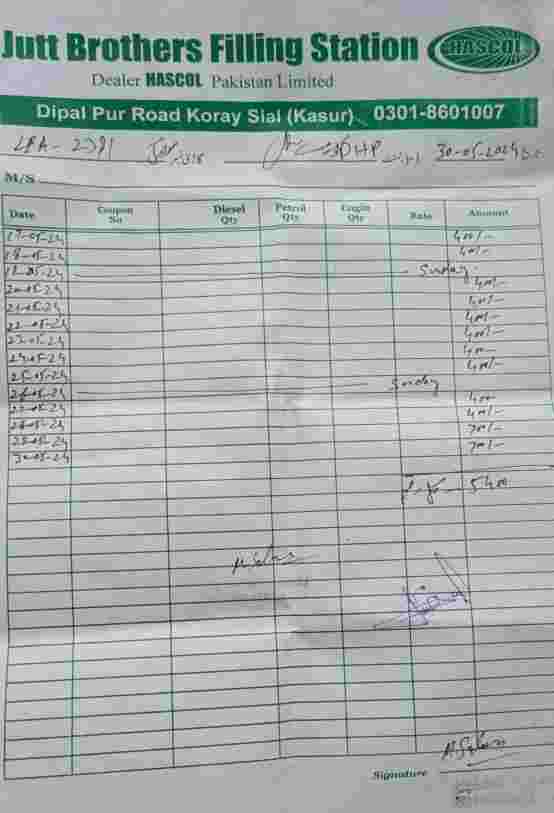 Jutt Brothers Filling Station
HASCOL
Dealer HASCOL Pakistan Limited
Dipal Pur Road Koray Sial (Kasur) 0301-8601007
LRA-2391 DHP 30-05-2024
M/S
Date Coupon No Diesel Qty Petrol Qty Engin Qty Rate Amount
17-05-24 400/-
18-05-24 400/-
19-05-24 Sunday
20-05-24 400/-
21-05-24 400/-
22-05-24 400/-
23-05-24 400/-
24-05-24 400-
25-05-24 400/-
26-05-24 Sunday
27-05-24 400
28-05-24 400/-
29-05-24 700/-
30-05-24 700/-
5400
Signature